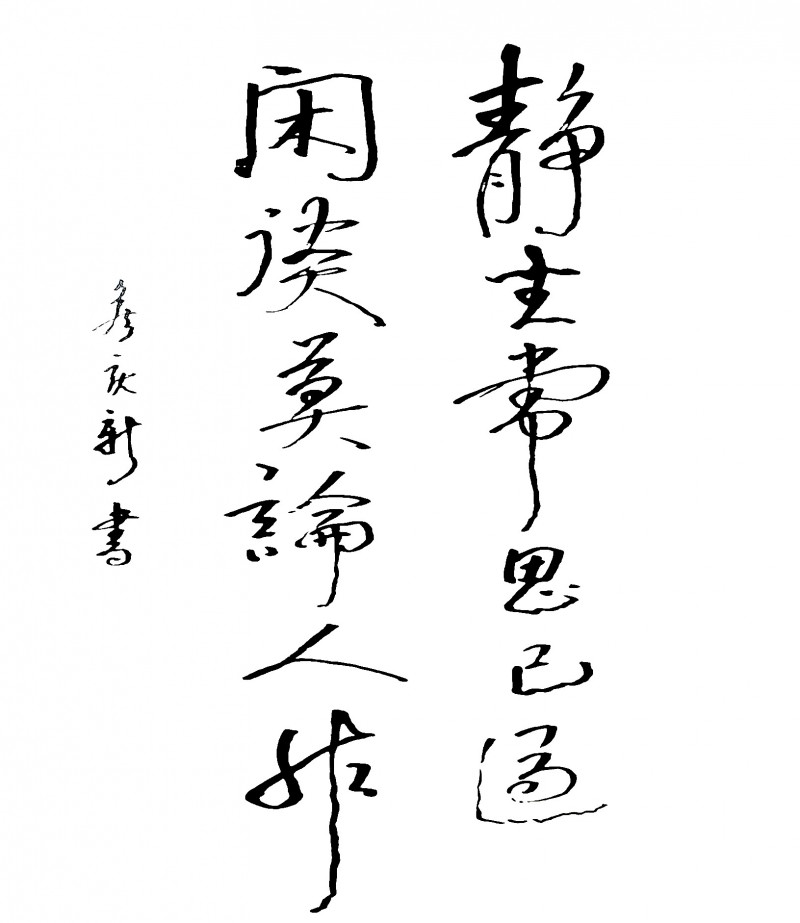 静坐常思己過
闲谈莫論人非
新書